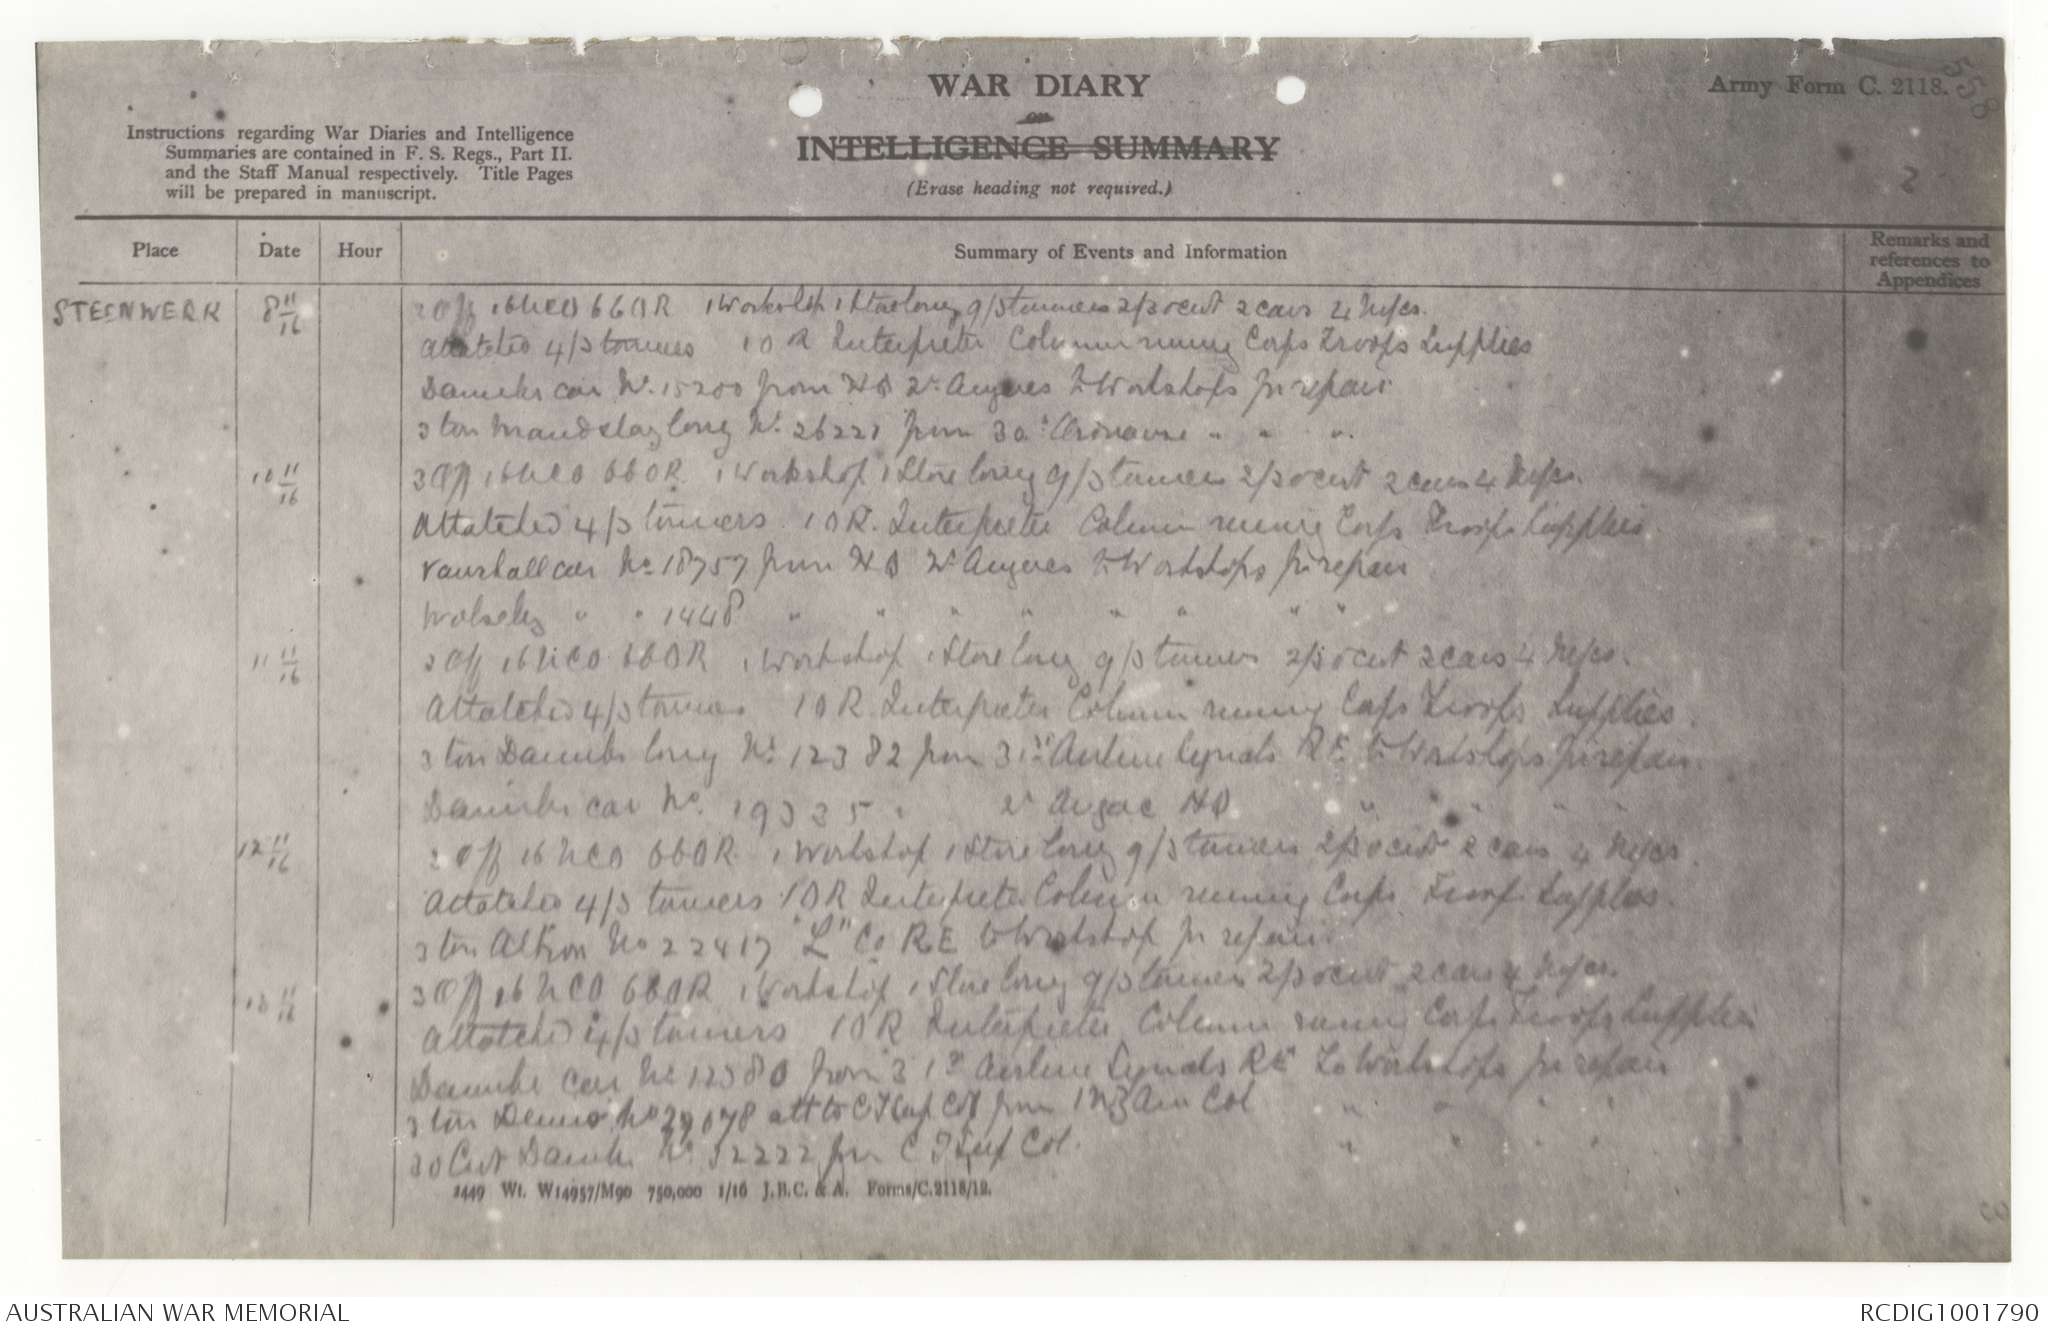 WAR DIARY
or
INTELLIGENCE SUMMARY
(Erase heading not required.)
Army Form C. 2118.
358
2
Instructions regarding War Diaries and Intelligence
Summaries are contained in F. S. Regs., Part II.
and the Staff Manual respectively. Title Pages
will be prepared in manuscript.
Place
Date
Hour
Summary of Events and Information
Remarks and
references to
Appendices
STEENWERK
8 11/16
3 Off 16 NCO 66 OR 1 Workshop 1 Store lorry 9/3 tonners 2/30 cwt 2 cars 4 M/cs.
Attatched 4/3 tonners 1 OR Interpreter Column running Corps Troops Supplies
Daimler car No. 15200 from HQ 2nd Anzacs to Workshops for repair
3 ton Maudslay lorry No. 26221 from 30 Ordnance " " "
10 11/16
3 Off 16 NCO 66 OR. 1 Workshop 1 Store lorry 9/3 tonners 2/30 cwt 2 cars 4 M/cs.
Attatched 4/3 tonners. 1 OR. Interpreter Column running Corps Troops Supplies.
Vauxhall car No 18757 from HQ 2nd Anzacs to Workshops for repair
Wolseley " " 1448 " " " " " " " "
11 11/16
3 Off 16 NCO 66 OR 1 Workshop 1 Store lorry 9/3 tonners 2/30 cwt 2 cars 4 M/cs.
Attatched 4/3 tonners 1 OR. Interpreter Column running Corps Troops Supplies.
3 ton Daimler lorry No. 12382 from 31st Airline Signals RE to Workshops for repair.
Daimler car No. 19325 " 2nd Anzac HQ. " " " "
12 11/16
3 Off 16 NCO 66 OR 1 Workshop 1 Store lorry 9/3 tonners 2/30 cwt 2 cars 4 M/cs.
Attatched 4/3 tonners 1 OR Interpreter Column running Corps Troop Supplies.
3 ton Albion No 22417 "L" Co RE to Workshop for repair.
13 11/16
3 Off 16 NCO 66 OR 1 Workshop 1 Store lorry 9/3 tonners 2/30 cwt 2 cars 4 M/cs.
Attatched 4/3 tonners 1 OR Interpreter Column running Corps Troops Supplies
Daimler car No 12380 from 31st Airline Signals RE To Workshops for repair
3 ton Dennis No 29078 att to C T Sup Col from 1 NZ Am Col " " " "
30 Cwt Daimler No. 52222 from C T Sup Col. " " " "
2449 Wt. W14957/M90 750,000 1/16 J.B.C. & A. Forms/C.2118/12.
AUSTRALIAN WAR MEMORIAL
RCDIG1001790